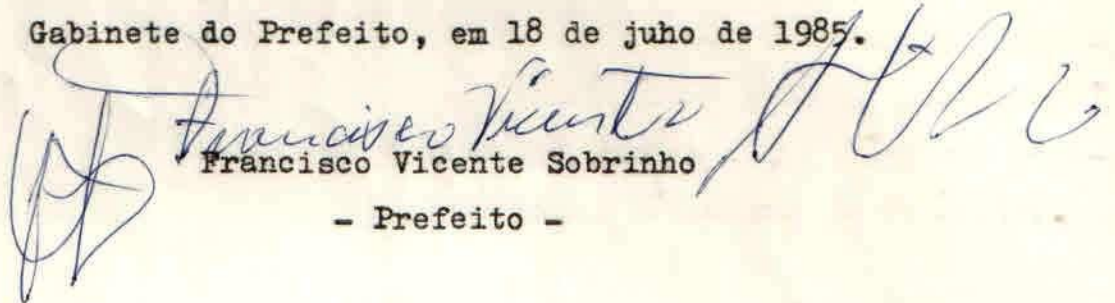 Gabinete do Prefeito, em 18 de juho de 1985.
Francisco Vicente
Francisco Vicente Sobrinho
- Prefeito -